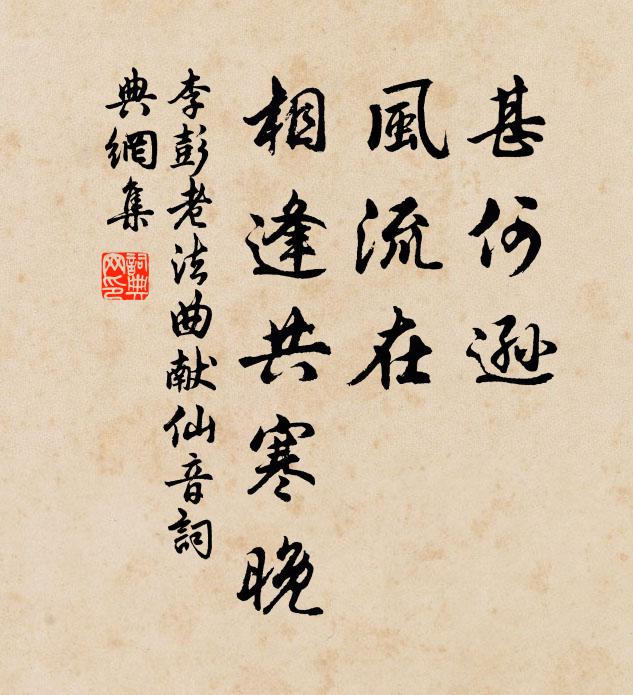 甚何遜
風流在
相逢共寒晚
李彭老法曲献仙音詞
典網集
詞典網印